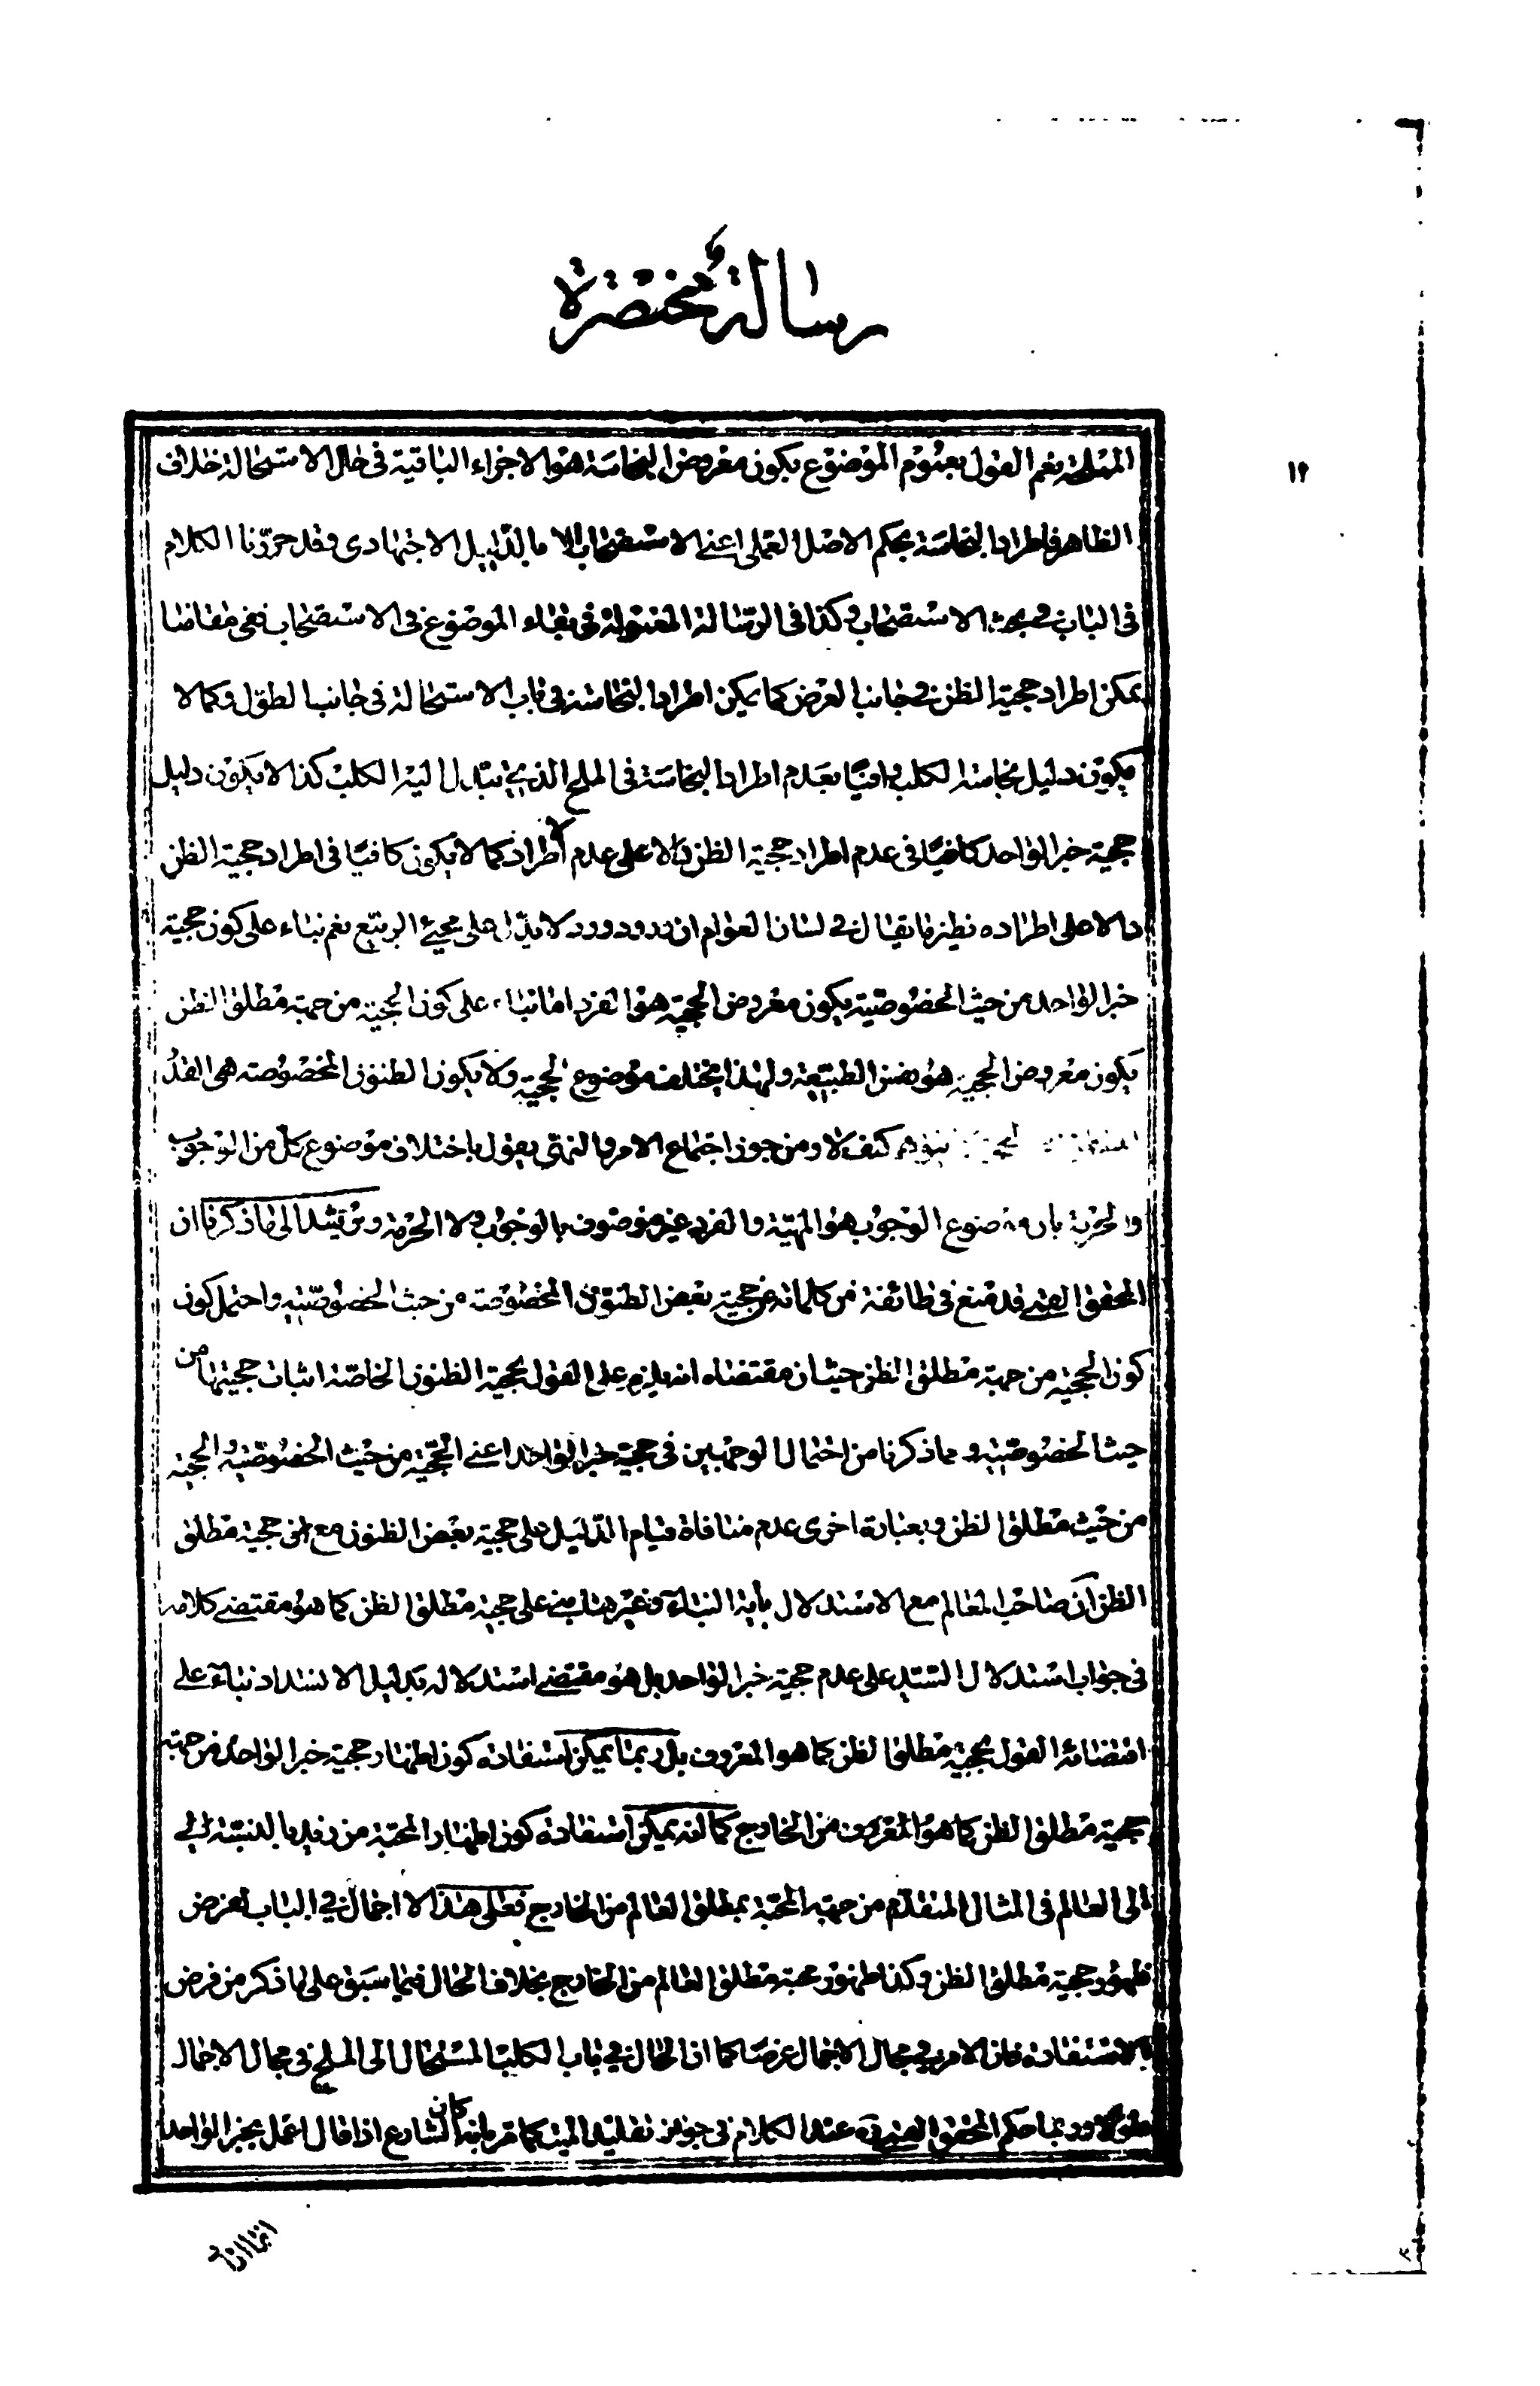 رسالة مختصرة
١٢
نعم القول بعموم الموضوع يكون معروض النجاسة هو الاجزاء الباقية فى حال الاستحالة خلاف
الظاهر فاطراد النجاسة بحكم الاصل العملى اعنى الاستصحاب لا بالدليل الاجتهادى وقد حررنا الكلام
فى الباب فى بحث الاستصحاب وكذا فى الرسالة المعمولة فى بقاء الموضوع فى الاستصحاب ففى مقامنا
يمكن اطراد حجية الظن فى جانب العرض كما يمكن اطراد النجاسة فى باب الاستحالة فى جانب الطول وكما لا
يكون دليل نجاسة الكلب وافيًا بعدم اطراد النجاسة فى الملح الذى يتبدل اليه الكلب كذا لا يكون دليل
حجية خبر الواحد كافيًا فى عدم اطراد حجية الظن دالا على عدم اطراد كما لا يكون كافيًا فى اطراد حجية الظن
دالا على اطراده نظير ما يقال فى لسان العوام ان لا يدل على مجيء الربيع نعم بناء على كون حجية
خبر الواحد من حيث الخصوصية يكون معروض الحجية هو الفرد اما بناء على كون الحجية من جهة مطلق الظن
يكون معروض الحجية هو نفس الطبيعة ولهذا يختلف موضوع الحجية ولا يكون الظنون المخصوصة هى القدر
كيف لا ومن جوز اجتماع الامر والنهى يقول باختلاف موضوع كل من الوجوب
والحرمة بان موضوع الوجوب هو المهية والفرد غير موصوف بالوجوب ولا الحرمة ويرشد الى ما ذكرنا ان
المحقق القمى قد منع فى طائفة من كلماته عن حجية بعض الظنون المخصوصة من حيث الخصوصية واحتمل كون
كون الحجية من جهة مطلق الظن حيث ان مقتضاه انه يلزم على القول بحجية الظنون الخاصة اثبات حجيتها من
حيث الخصوصية وما ذكرنا من احتمال الوجهين فى حجية خبر الواحد اعنى الحجية من حيث الخصوصية والحجية
من حيث مطلق الظن وبعبارة اخرى عدم منافاة قيام الدليل على حجية بعض الظنون مع حجية مطلق
الظن ان صاحب المعالم مع الاستدلال بآية النبأ وغيرها بنى على حجية مطلق الظن كما هو مقتضى كلامه
فى جواب استدلال السيد على عدم حجية خبر الواحد بل هو مقتضى استدلاله بدليل الانسداد بناء على
اقتضائه القول بحجية مطلق الظن كما هو المعروف بل ربما يمكن استفادة كون اظهار حجية خبر الواحد من جهة
حجية مطلق الظن كما هو المعروف من الخارج كما انه يمكن استفادة كون اظهار المحبة من زيد بالنسبة الى
الى العالم فى المثال المتقدم من جهة المحبة بمطلق العالم من الخارج فعلى هذا لا اجمال فى الباب لعرض
ظهور حجية مطلق الظن وكذا ظهور محبة مطلق العالم من الخارج بخلاف الحال فيما سبق على ما ذكر من فرض
الاستفادة فان الامر فى مجال الاجمال عرضا كما ان الحال فى باب الكلب المستحال الى الملح فى مجال الاجمال
طولا وربما حكم المحقق القمى عند الكلام فى جواز تقليد الميت كما مر بانه كان الشارع اذا قال اعمل بخبر الواحد